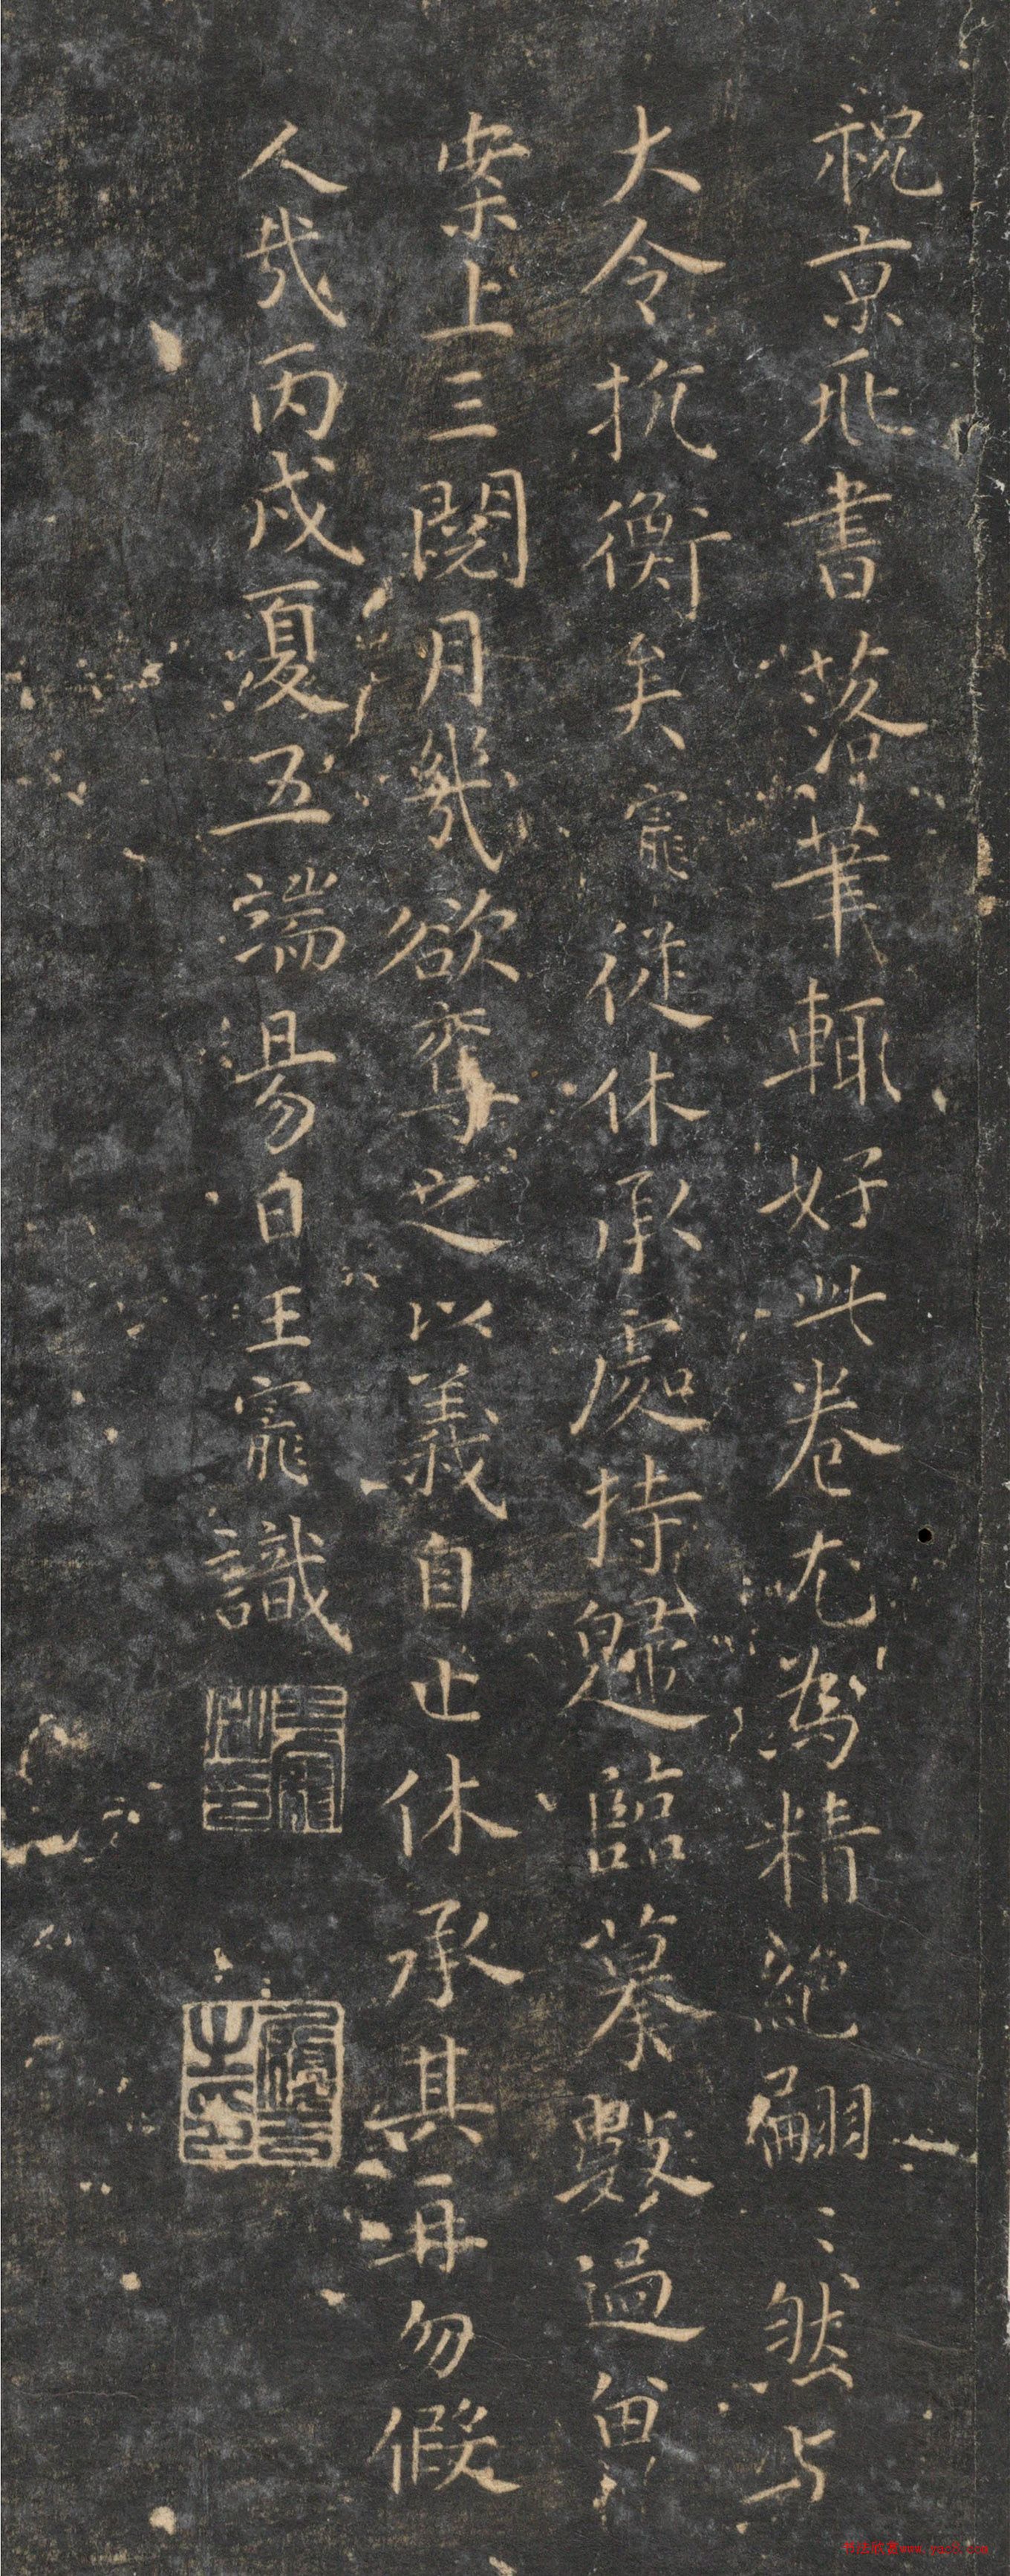 祝京兆書落筆輒好此卷尤為精絕翩〻然与
大令抗衡矣寵從休承處持歸臨摹數過留
案上三閱月幾欲奪之以義自止休承其再勿假
人哉丙戌夏五端昜日王寵識
王寵